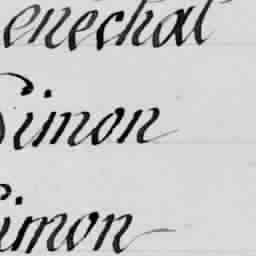 Senechal
Simon
Simon